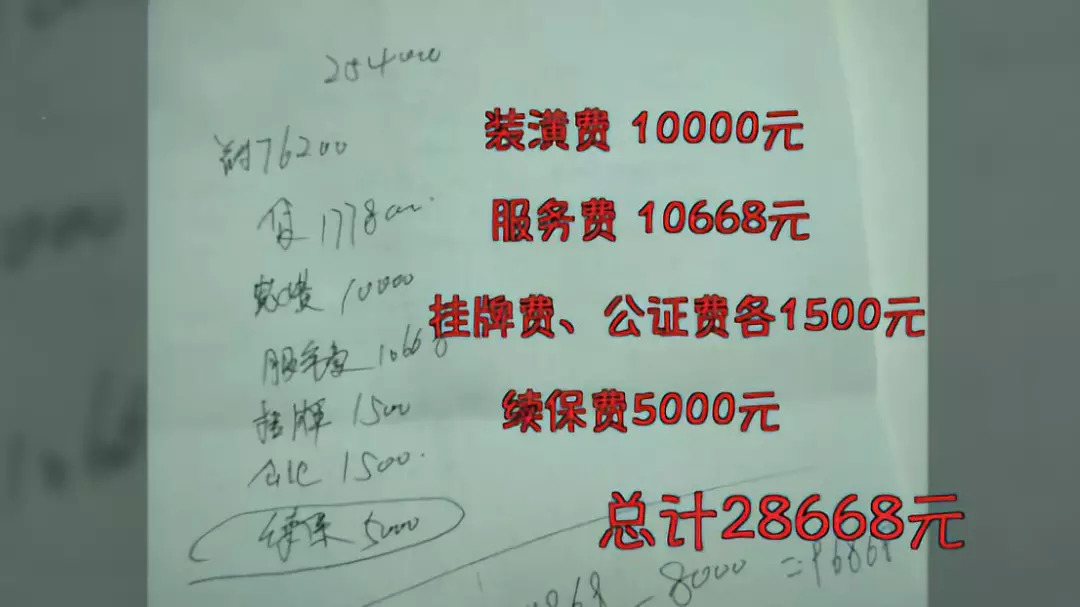 254000
首付76200
贷177800.
装潢费 10000元
装潢 10000
服务费 10668元
服务费 10668
挂牌费、公证费各1500元
挂牌 1500
公证 1500.
续保费5000元
续保 5000
总计28668元
868-8000=96868